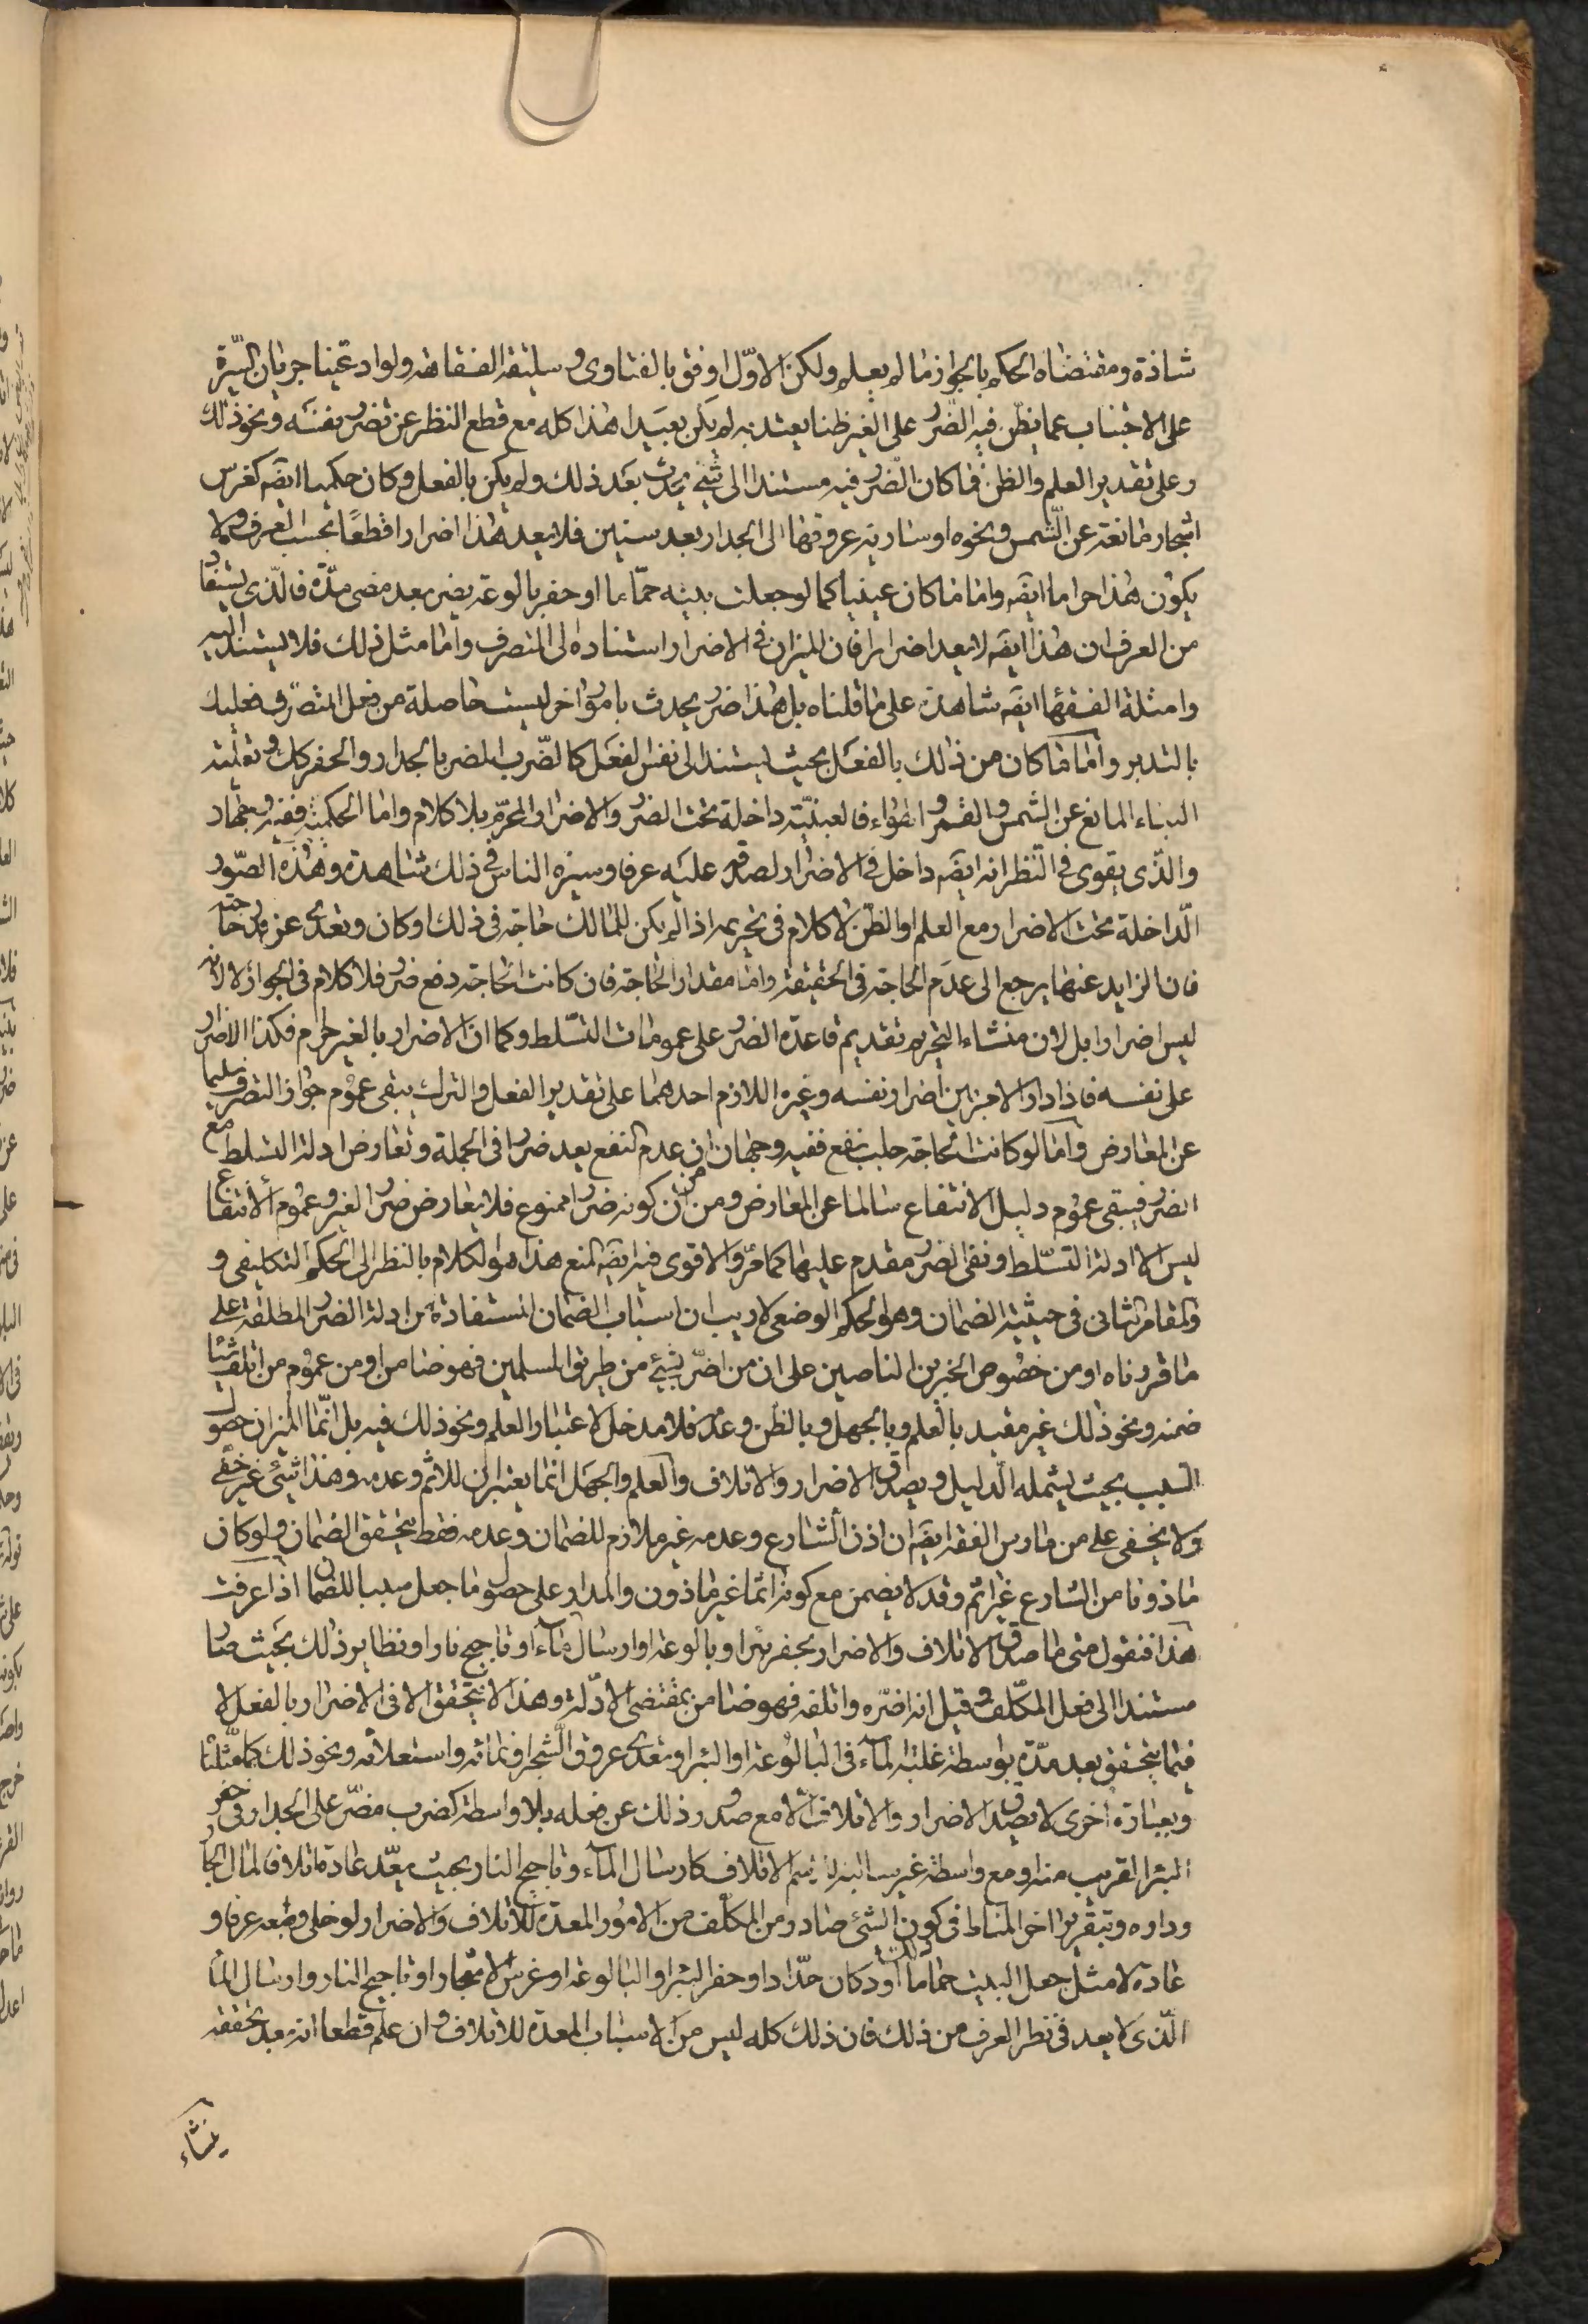 شاذة ومقتضاه الحكم بالجواز ما لم يعلم ولكن الاوّل اوفق بالفتاوى وسليقة الفقاهة ولو ادعينا جريان السيرة
على الاجتناب عما يظن فيه الضرر على الغير ظنا يعتد به لم يكن بعيدا هذا كله مع قطع النظر عن تضرر نفسه ونحو ذلك
وعلى تقدير العلم والظن فما كان الضرر فيه مستندا الى شيء يحدث بعد ذلك ولم يكن بالفعل وكان حكميا ايضه كغرس
اشجار مانعة عن الشمس ونحوه او سارية عروقها الى الجدار بعد سنين فلا يعد هذا اضرارا قطعا بحسب العرف ولا
يكون هذا حراما ايضه واما ما كان عينيا كما لو جعلت بيته حمّاما او حفر بالوعة يضر بعد مضى مدّة فالذى يستفاد
من العرف ان هذا ايضه لا يعد اضرارا فان الميزان فى الاضرار استناده الى المتصرف واما مثل ذلك فلا يستند اليه
وامثلة الفقهاء ايضه شاهدة على ما قلناه بل هذا ضرر يحدث بامور اخر ليست حاصلة من فعل المتصرف فعليك
بالتدبر وأمّا ما كان من ذلك بالفعل بحيث يستند الى نفس الفعل كالضرب المضر بالجدار والحفر كك وتعلية
البناء المانع عن الشمس والقمر والهواء فالعينيّة داخلة تحت الضرر والاضرار المحرّم بلا كلام واما الحكمية ففيه وجهان
والذى يقوى فى النظر انه ايضه داخل فى الاضرار لصدقه عليه عرفا وسيرة الناس فى ذلك شاهدة وهذه الصّور
الداخلة تحت الاضرار ومع العلم او الظن لا كلام فى تحريمه اذا لم يكن للمالك حاجة فى ذلك او كان وتعدى عن قدر حاجته
فان الزايد عنها يرجع الى عدم الحاجة فى الحقيقة واما مقدار الحاجة فان كانت الحاجة دفع ضرر فلا كلام فى الجواز لا لانه
ليس اضرارا بل لان منشاء التحريم تقديم قاعدة الضرر على عمومات التسلط وكما ان الاضرار بالغير حرام فكذا الاضرار
على نفسه فاذا دار الامر بين اضرار نفسه وغيره اللازم احدهما على تقدير الفعل والترك يبقى عموم جواز التصرف سليما
عن المعارض وأمّا لو كانت الحاجة جلب نفع ففيه وجهان من ان عدم النفع يعد ضررا فى الجملة وتعارض ادلة التسلط مع
الضرر فيبقى عموم دليل الانتفاع سالما عن المعارض ومن ان كونه ضررا ممنوع فلا يعارض ضرر الغير وعموم الانتفاع
ليس الا ادلة التسلّط ونفى الضرر مقدم عليها كما مرّ والاقوى فيه ايضه المنع هذا هو الكلام بالنظر الى الحكم التكليفى و
والمقام الثانى فى حيثية الضمان وهو الحكم الوضعى لا ريب ان اسباب الضمان المستفادة من ادلة الضرر المطلقة على
ما قررناه او من خصوص الخبرين الناصين على ان من اضرّ بشئ من طريق المسلمين فهو ضامن او من عموم من اتلف شيئا
ضمنه ونحو ذلك غير مقيد بالعلم وبالجهل وبالظن وعدمه فلا مدخل لاعتبار العلم ونحو ذلك فيه بل انّما الميزان حصول
السبب بحيث يشمله الدليل ويصدق الاضرار والاتلاف والعلم والجهل انما يعتبران للاثم وعدمه وهذا شئ غير خفى
ولا يخفى على من مارس الفقه ايضه ان اذن الشارع وعدمه غير ملازم للضمان وعدمه فقط يتحقق الضمان ولو كان
ماذونا من الشارع غير اثم وقد لا يضمن مع كونه اثما غير ماذون والمدار على حصول ما جعل سببا للضمان اذا عرفت
هذا فنقول متى ما صدق الاتلاف والاضرار بحفر بئر او بالوعة او ارسال ماء او تاجيج نار او نظاير ذلك بحيث صار
مستندا الى فعل المكلّف وقيل انه اضرّه واتلفه فهو ضامن بمقتضى الادلّة وهذا لا يتحقق الا فى الاضرار بالفعل لا
فيما يتحقق بعد مدّة بوسطة غلبة الماء فى البالوعة او البئر او تعدى عروق الشجر او نمائه واستعلائه ونحو ذلك كما مثّلنا
وبعبارة اخرى لا يصدق الاضرار والاتلاف الا مع صدور ذلك عن فعله بلا واسطة كضرب مضرّ على الجدار وفى حفر
البئر القريب منه او مع واسطة غير سالبة لاسم الاتلاف كارسال الماء وتاجيج النار بحيث يعدّ عادة اتلافا لمال الجار
وداره وبتقرير اخر المناط فى كون الشئ صادر ومن المكلّف من الامور المعدة للاتلاف والاضرار لو خلى وطبعه عرفا و
عادة لا مثل جعل البيت حماما او دكان حدّاد او حفر البئر او البالوعة او غرس الاشجار او تاجيج النار وارسال الماء
الّذى لا يعد فى نظر العرف من ذلك فان ذلك كله ليس من الاسباب المعدة للاتلاف وان علم قطعا انه بعد تحققه
ينشاء